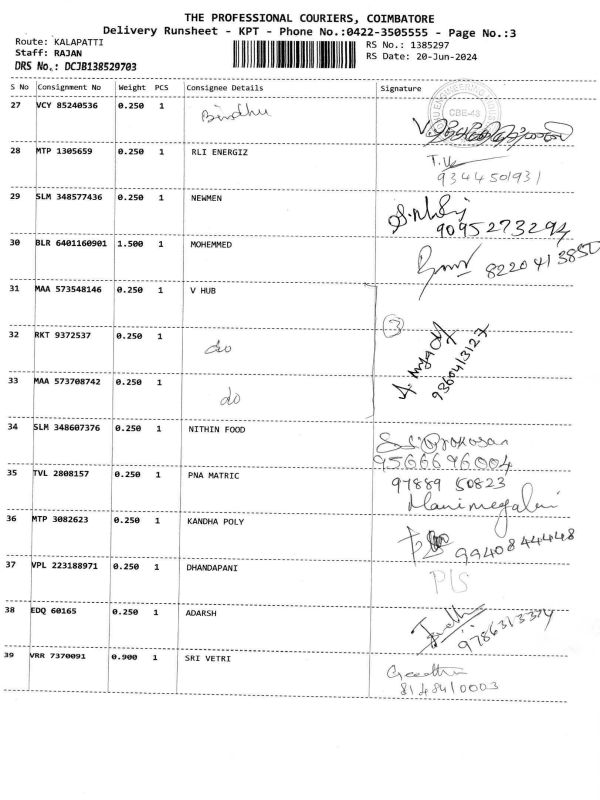 THE PROFESSIONAL COURIERS, COIMBATORE
Delivery Runsheet - KPT - Phone No.:0422-3505555 - Page No.:3
Route: KALAPATTI
RS No.: 1385297
Staff: RAJAN
RS Date: 20-Jun-2024
DRS No.: DCJB138529703
S No Consignment No Weight PCS Consignee Details Signature
27 VCY 85240536 0.250 1 Bindhu
CBE-48
28 MTP 1305659 0.250 1 RLI ENERGIZ
9344501931
29 SLM 348577436 0.250 1 NEWMEN
9095273294
30 BLR 6401160901 1.500 1 MOHEMMED
8220413850
31 MAA 573548146 0.250 1 V HUB
3
32 RKT 9372537 0.250 1 do
9360413127
33 MAA 573708742 0.250 1 do
34 SLM 348607376 0.250 1 NITHIN FOOD
9566696004
35 TVL 2808157 0.250 1 PNA MATRIC
97889 50823
Manimegalai
36 MTP 3082623 0.250 1 KANDHA POLY
9940844448
37 VPL 223188971 0.250 1 DHANDAPANI
P/S
38 EDQ 60165 0.250 1 ADARSH
9786313374
39 VRR 7370091 0.900 1 SRI VETRI
8148410003